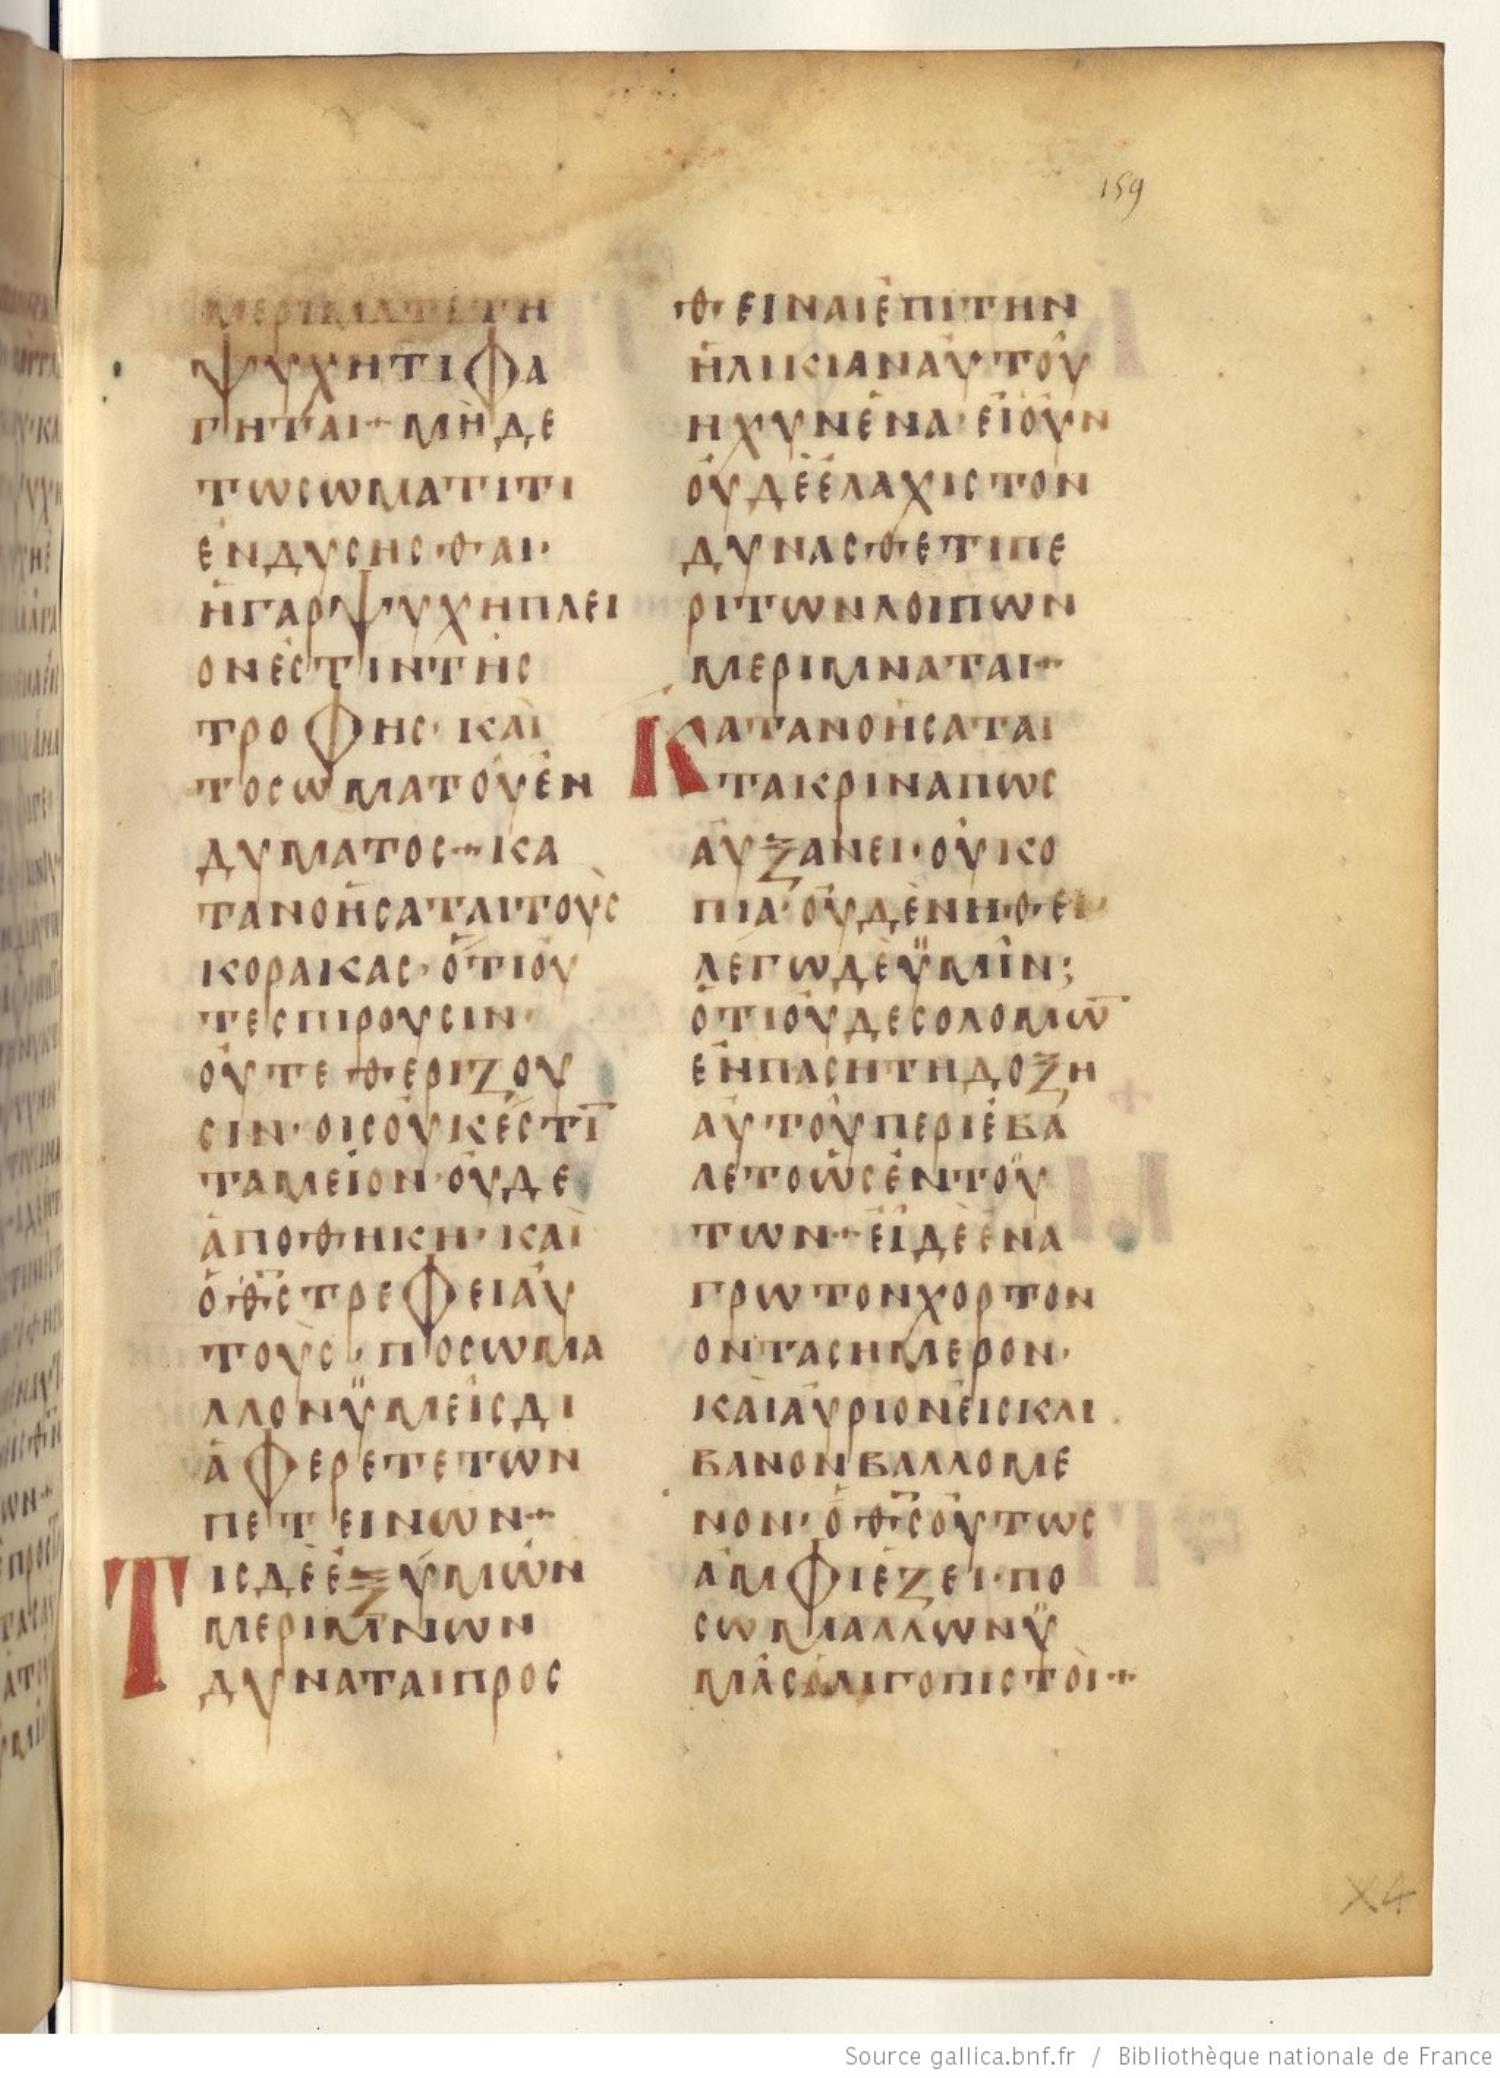 159
ΜΕΡΙΜΑΤΕΤΗ
ΨΥΧΗΤΙΦΑ
ΓΗΤΑΙ·ΜΗΔΕ
ΤΩΣΩΜΑΤΙΤΙ
ΕΝΔΥΣΗΣΘΑΙ·
ΗΓΑΡΨΥΧΗΠΛΕΙ
ΟΝΕΣΤΙΝΤΗΣ
ΤΡΟΦΗΣ·ΚΑΙ
ΤΟΣΩΜΑΤΟΥΕΝ
ΔΥΜΑΤΟΣ·ΚΑ
ΤΑΝΟΗΣΑΤΑΙΤΟΥΣ
ΚΟΡΑΚΑΣ·ΟΤΙΟΥ
ΤΕΣΠΙΡΟΥΣΙΝ·
ΟΥΤΕΘΕΡΙΖΟΥ
ΣΙΝ·ΟΙΣΟΥΚΕΣΤΙ̅
ΤΑΜΕΙΟΝ·ΟΥΔΕ
ΑΠΟΘΗΚΗ·ΚΑΙ
ΟΘ̅Σ̅ΤΡΕΦΕΙΑΥ
ΤΟΥΣ·ΠΟΣΩΜΑ
ΛΛΟΝΫΜΕΙΣΔΙ
ΑΦΕΡΕΤΕΤΩΝ
ΠΕΤΕΙΝΩΝ·
ΤΙΣΔΕΕΞΥΜΩΝ
ΜΕΡΙΜΝΩΝ
ΔΥΝΑΤΑΙΠΡΟΣ
ΘΕΙΝΑΙΕΠΙΤΗΝ
ΗΛΙΚΙΑΝΑΥΤΟΥ
ΗΧΥΝΕΝΑ·ΕΙΟΥΝ
ΟΥΔΕΕΛΑΧΙΣΤΟΝ
ΔΥΝΑΣΘΕΤΙΠΕ
ΡΙΤΩΝΛΟΙΠΩΝ
ΜΕΡΙΜΝΑΤΑΙ·
ΚΑΤΑΝΟΗΣΑΤΑΙ
ΤΑΚΡΙΝΑΠΩΣ
ΑΥΞΑΝΕΙ·ΟΥΚΟ
ΠΙΑ·ΟΥΔΕΝΗΘΕΙ·
ΛΕΓΩΔΕΫΜΙΝ;
ΟΤΙΟΥΔΕΣΟΛΟΜΩ̅
ΕΝΠΑΣΗΤΗΔΟΞΗ
ΑΥΤΟΥΠΕΡΙΕΒΑ
ΛΕΤΟΩΣΕΝΤΟΥ
ΤΩΝ·ΕΙΔΕΕΝΑ
ΓΡΩΤΟΝΧΟΡΤΟΝ
ΟΝΤΑΣΗΜΕΡΟΝ·
ΚΑΙΑΥΡΙΟΝΕΙΣΚΛΙ
ΒΑΝΟΝΒΑΛΛΟΜΕ
ΝΟΝ·ΟΘ̅Σ̅ΟΥΤΩΣ
ΑΜΦΙΕΖΕΙ·ΠΟ
ΣΩΜΑΛΛΩΝΫ
ΜΑΣΟΛΙΓΟΠΙΣΤΟΙ·
X4
Source gallica.bnf.fr / Bibliothèque nationale de France